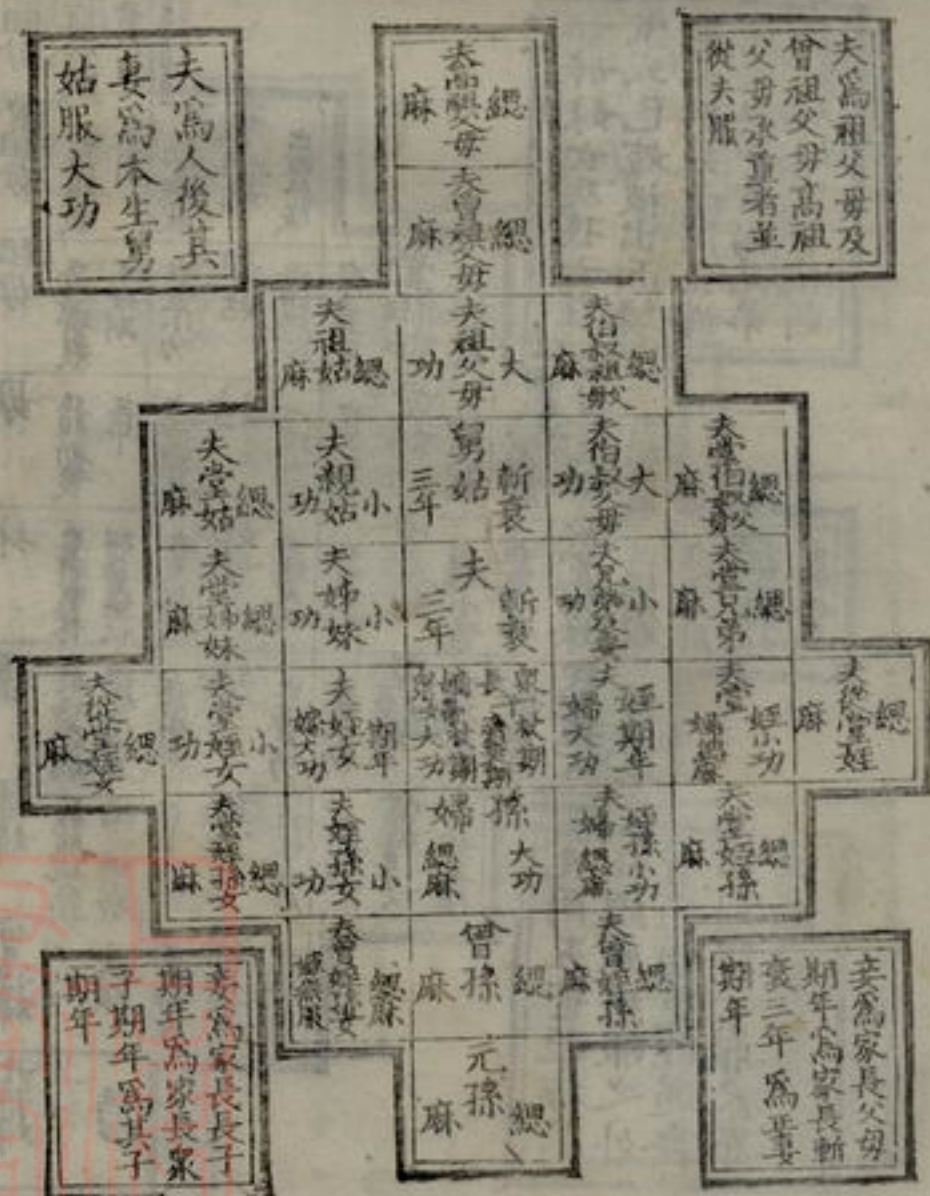 夫爲祖父母及
曾祖父母高祖
父母承重者並
從夫服
夫高祖父母
緦麻
夫曾祖父母
緦麻
夫爲人後其
妻爲本生舅
姑服大功
夫伯叔祖父母
緦麻
夫祖父母
大功
夫祖姑
緦麻
夫堂伯叔父母
緦麻
夫伯叔父母
大功
舅姑
斬衰
三年
夫親姑
小功
夫堂姑
緦麻
夫堂兄弟
緦麻
夫兄弟
小功
夫
斬衰
三年
夫姊妹
小功
夫堂姊妹
緦麻
夫從堂姪
緦麻
夫堂
姪小功
婦緦麻
夫
姪期年
婦大功
長子
夫姪女
期年
嫁大功
夫堂姪女
小功
夫從堂姪女
緦麻
夫堂姪孫
緦麻
夫
姪孫小功
婦緦麻
孫
大功
婦
緦麻
夫姪孫女
小功
夫堂姪孫女
緦麻
夫曾姪孫
緦麻
曾孫
緦麻
夫曾姪孫女
緦麻
嫁無服
元孫
緦麻
妾爲家長父母
期年爲家長斬
衰三年爲正妻
期年
妾爲家長長子
期年爲家長衆
子期年爲其子
期年